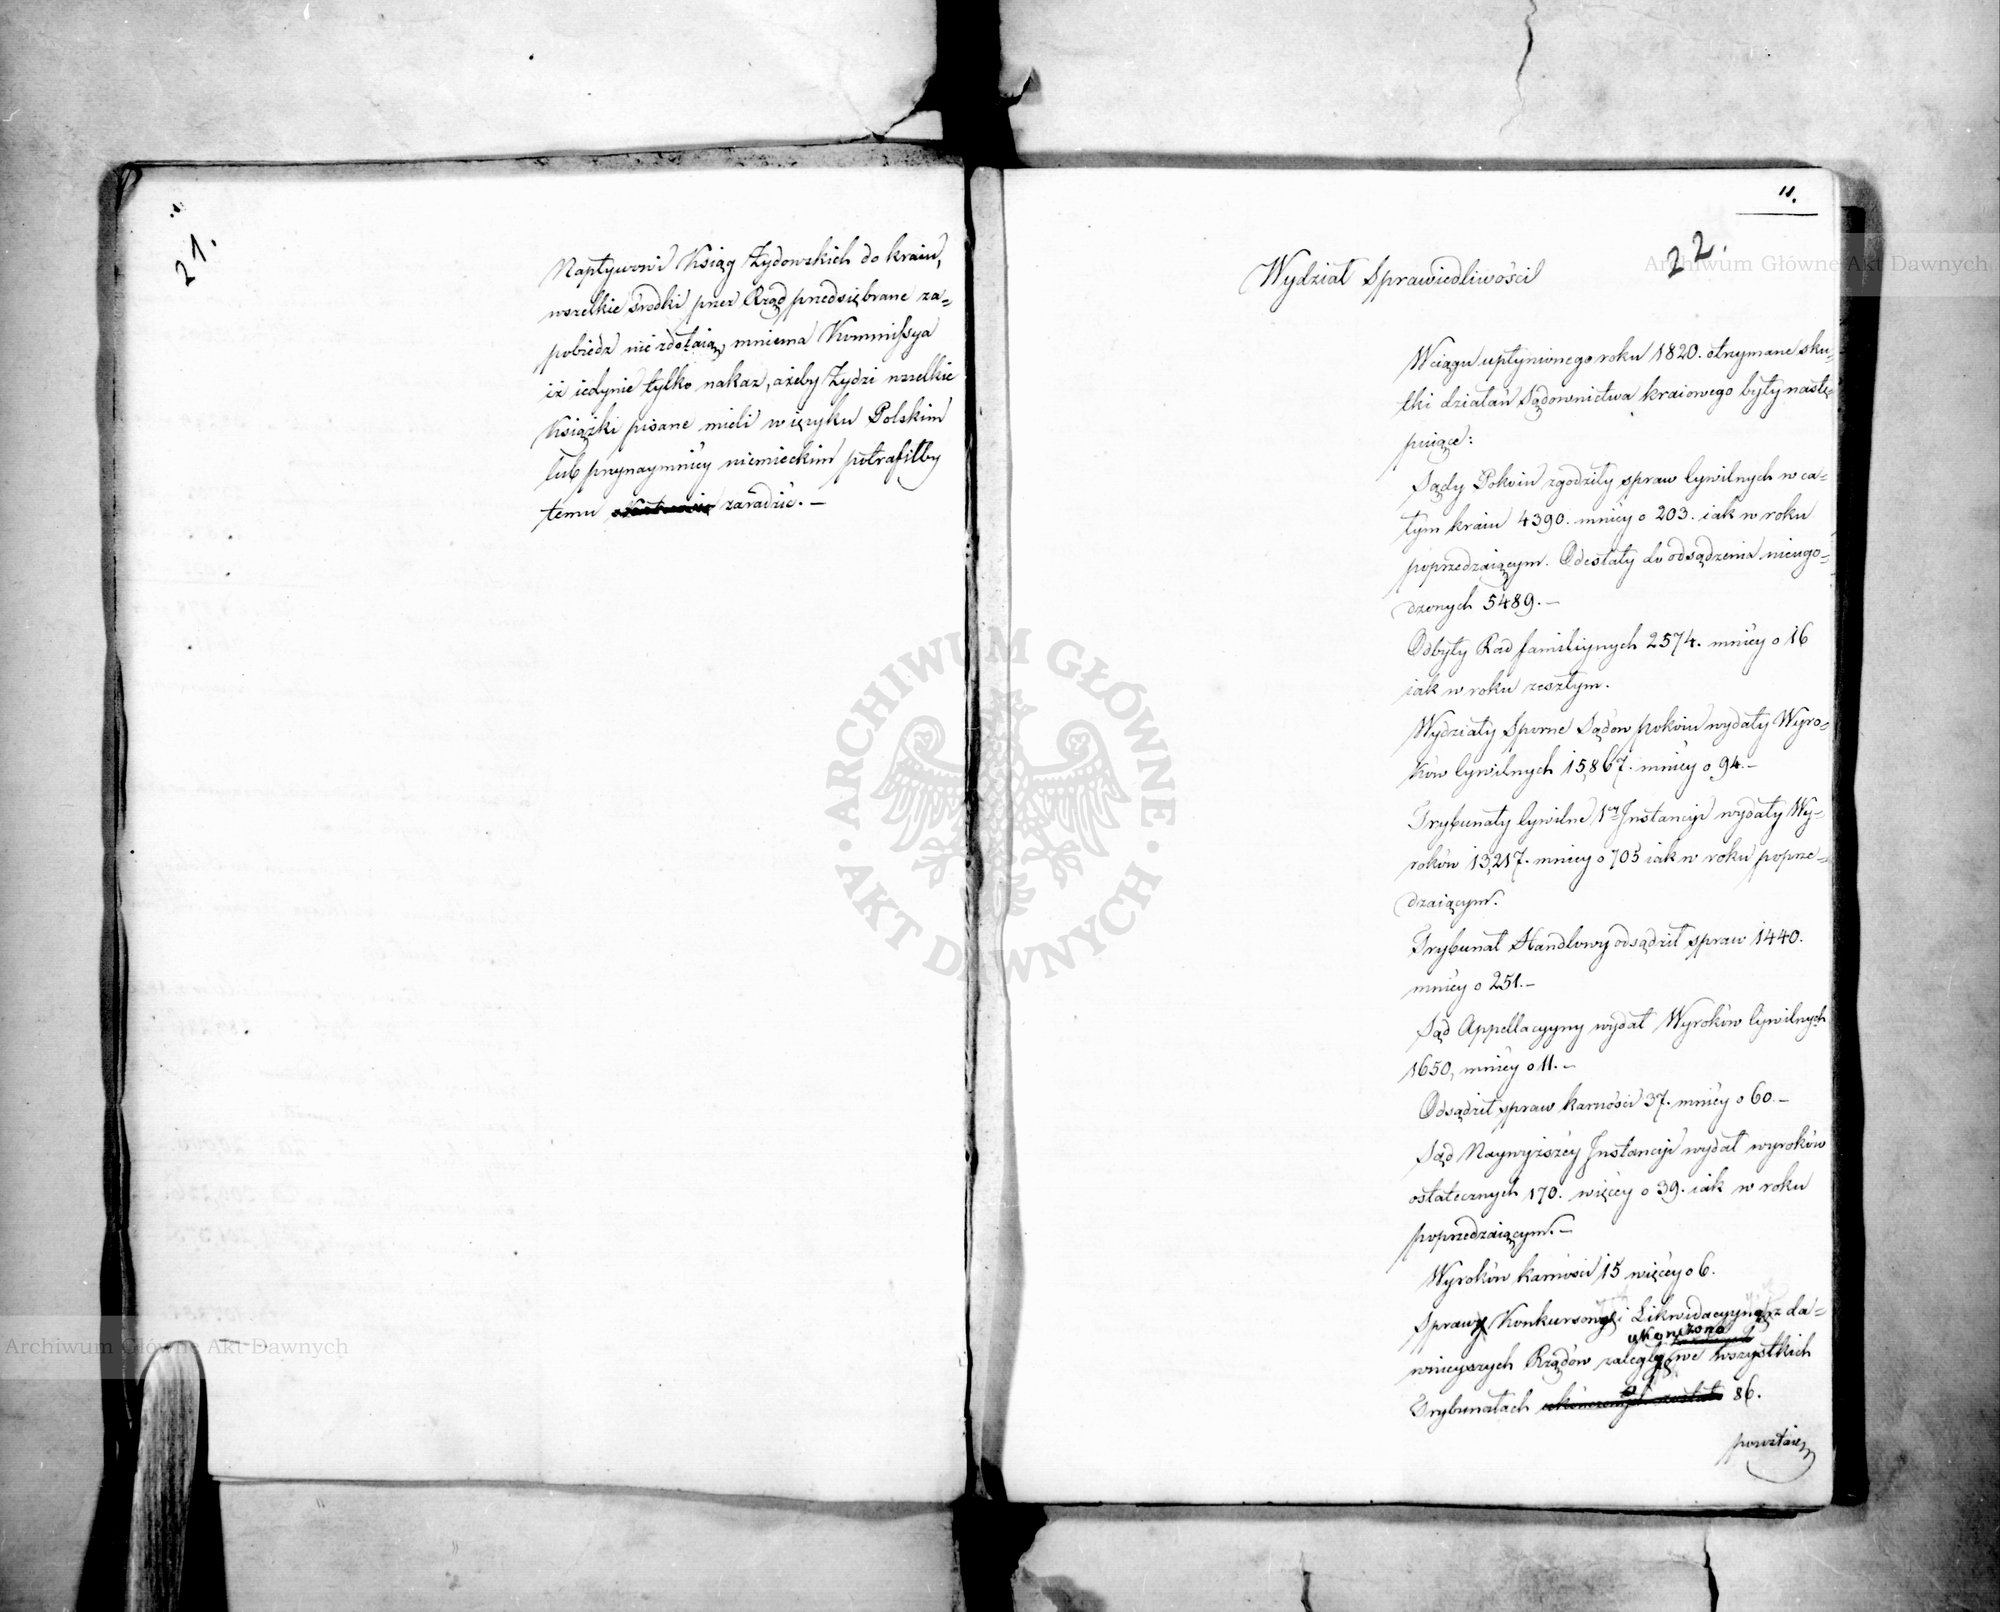 21.
Napływowi Ksiąg Żydowskich do kraiu,
wszelkie środki przez Rząd przedsiębrane za=
pobiedz nie zdołaią, mniema Kommissya
iż iedynie tylko nakaz, ażeby Żydzi wszelkie
Książki pisane mieli w ięzyku Polskim
lub przynaymniey niemieckim potrafiłby
temu zaradzić. —
11.
22.
Wydział Sprawiedliwości
W ciągu upłynionego roku 1820. otrzymane sku=
tki działań Sądownictwa kraiowego były nastę=
puiące:
Sądy Pokoiu zgodziły spraw Cywilnych w ca=
łym kraiu 4390. mniey o 203. iak w roku
poprzedzaiącym. Odesłały do odsądzenia nieugo=
dzonych 5489. —
Odbyły Rad familiynych 2574. mniey o 16
iak w roku zeszłym.
Wydziały Sporne Sądów pokoiu wydały Wyro=
ków Cywilnych 15,867. mniey o 94. —
Trybunały Cywilne 1ey Instancyi wydały Wy=
roków 13,217. mniey o 705 iak w roku poprze=
dzaiącym.
Trybunał Handlowy odsądził spraw 1440.
mniey o 251. —
Sąd Appellacyyny wydał Wyroków Cywilnych
1650, mniey o 11. —
Odsądził spraw karności 37. mniey o 60. —
Sąd Naywyższey Instancyi wydał wyroków
ostatecznych 170. więcey o 39. iak w roku
poprzedzaiącym. —
Wyroków karności 15 więcey o 6.
Spraw Konkursowych i Likwidacyynych z da=
ukończono
wnieyszych Rządów zaległych we wszystkich
Trybunałach 86.
pozostaie
ARCHIWUM GŁÓWNE · AKT DAWNYCH ·
Archiwum Główne Akt Dawnych
Archiwum Główne Akt Dawnych